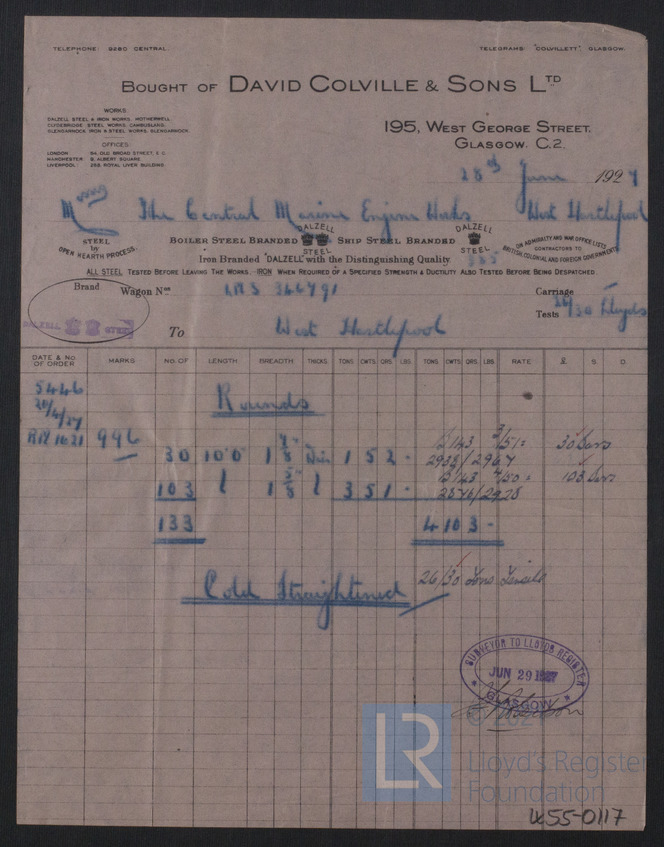 TELEPHONE: 9280 CENTRAL.
TELEGRAMS: "COLVILLETT", GLASGOW.
BOUGHT OF DAVID COLVILLE & SONS LTD
WORKS:
DALZELL STEEL & IRON WORKS, MOTHERWELL.
CLYDEBRIDGE STEEL WORKS, CAMBUSLANG.
GLENGARNOCK IRON & STEEL WORKS, GLENGARNOCK.
OFFICES:
LONDON 84, OLD BROAD STREET, E.C.
MANCHESTER 8, ALBERT SQUARE.
LIVERPOOL 252, ROYAL LIVER BUILDING.
195, WEST GEORGE STREET,
GLASGOW. C.2.
28th June 1927
Messrs The Central Marine Engine Works West Hartlepool
STEEL by OPEN HEARTH PROCESS.
BOILER STEEL BRANDED DALZELL STEEL SHIP STEEL BRANDED DALZELL STEEL
ON ADMIRALTY AND WAR OFFICE LISTS
CONTRACTORS TO
BRITISH, COLONIAL AND FOREIGN GOVERNMENTS.
Iron Branded "DALZELL" with the Distinguishing Quality
ALL STEEL TESTED BEFORE LEAVING THE WORKS. IRON WHEN REQUIRED OF A SPECIFIED STRENGTH & DUCTILITY ALSO TESTED BEFORE BEING DESPATCHED.
Brand
Wagon Nos LMS 346791
Carriage
Tests 26/30 Lloyds
DALZELL STEEL
To West Hartlepool
DATE & NO. OF ORDER MARKS NO. OF LENGTH BREADTH THICKS. TONS CWTS. QRS. LBS. TONS CWTS. QRS. LBS. RATE £ S. D.
5446
Rounds
996
30 10'0" 1 7/8" Dia 1 5 2 - 2938/2967 30 bars
103 1 5/8 3 5 1 - 2876/2928 103 bars
133 4 10 3 -
Cold Straightened 26/30 Tons Tensile
SURVEYOR TO LLOYDS REGISTER
JUN 29 1927
GLASGOW
LR
Lloyd's Register
Foundation
W55-0117